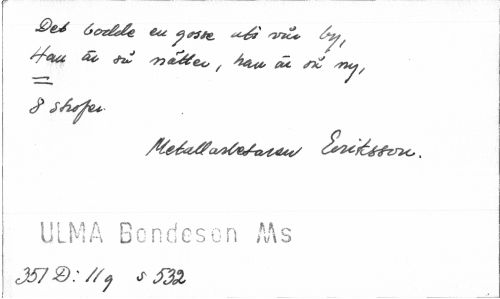 Det bodde en gosse uti vår by,
Han är så nätter, han är så ny,
=
8 strofer.
Metallarbetaren Eriksson.
ULMA Bondeson Ms
351 D: 11q s 532